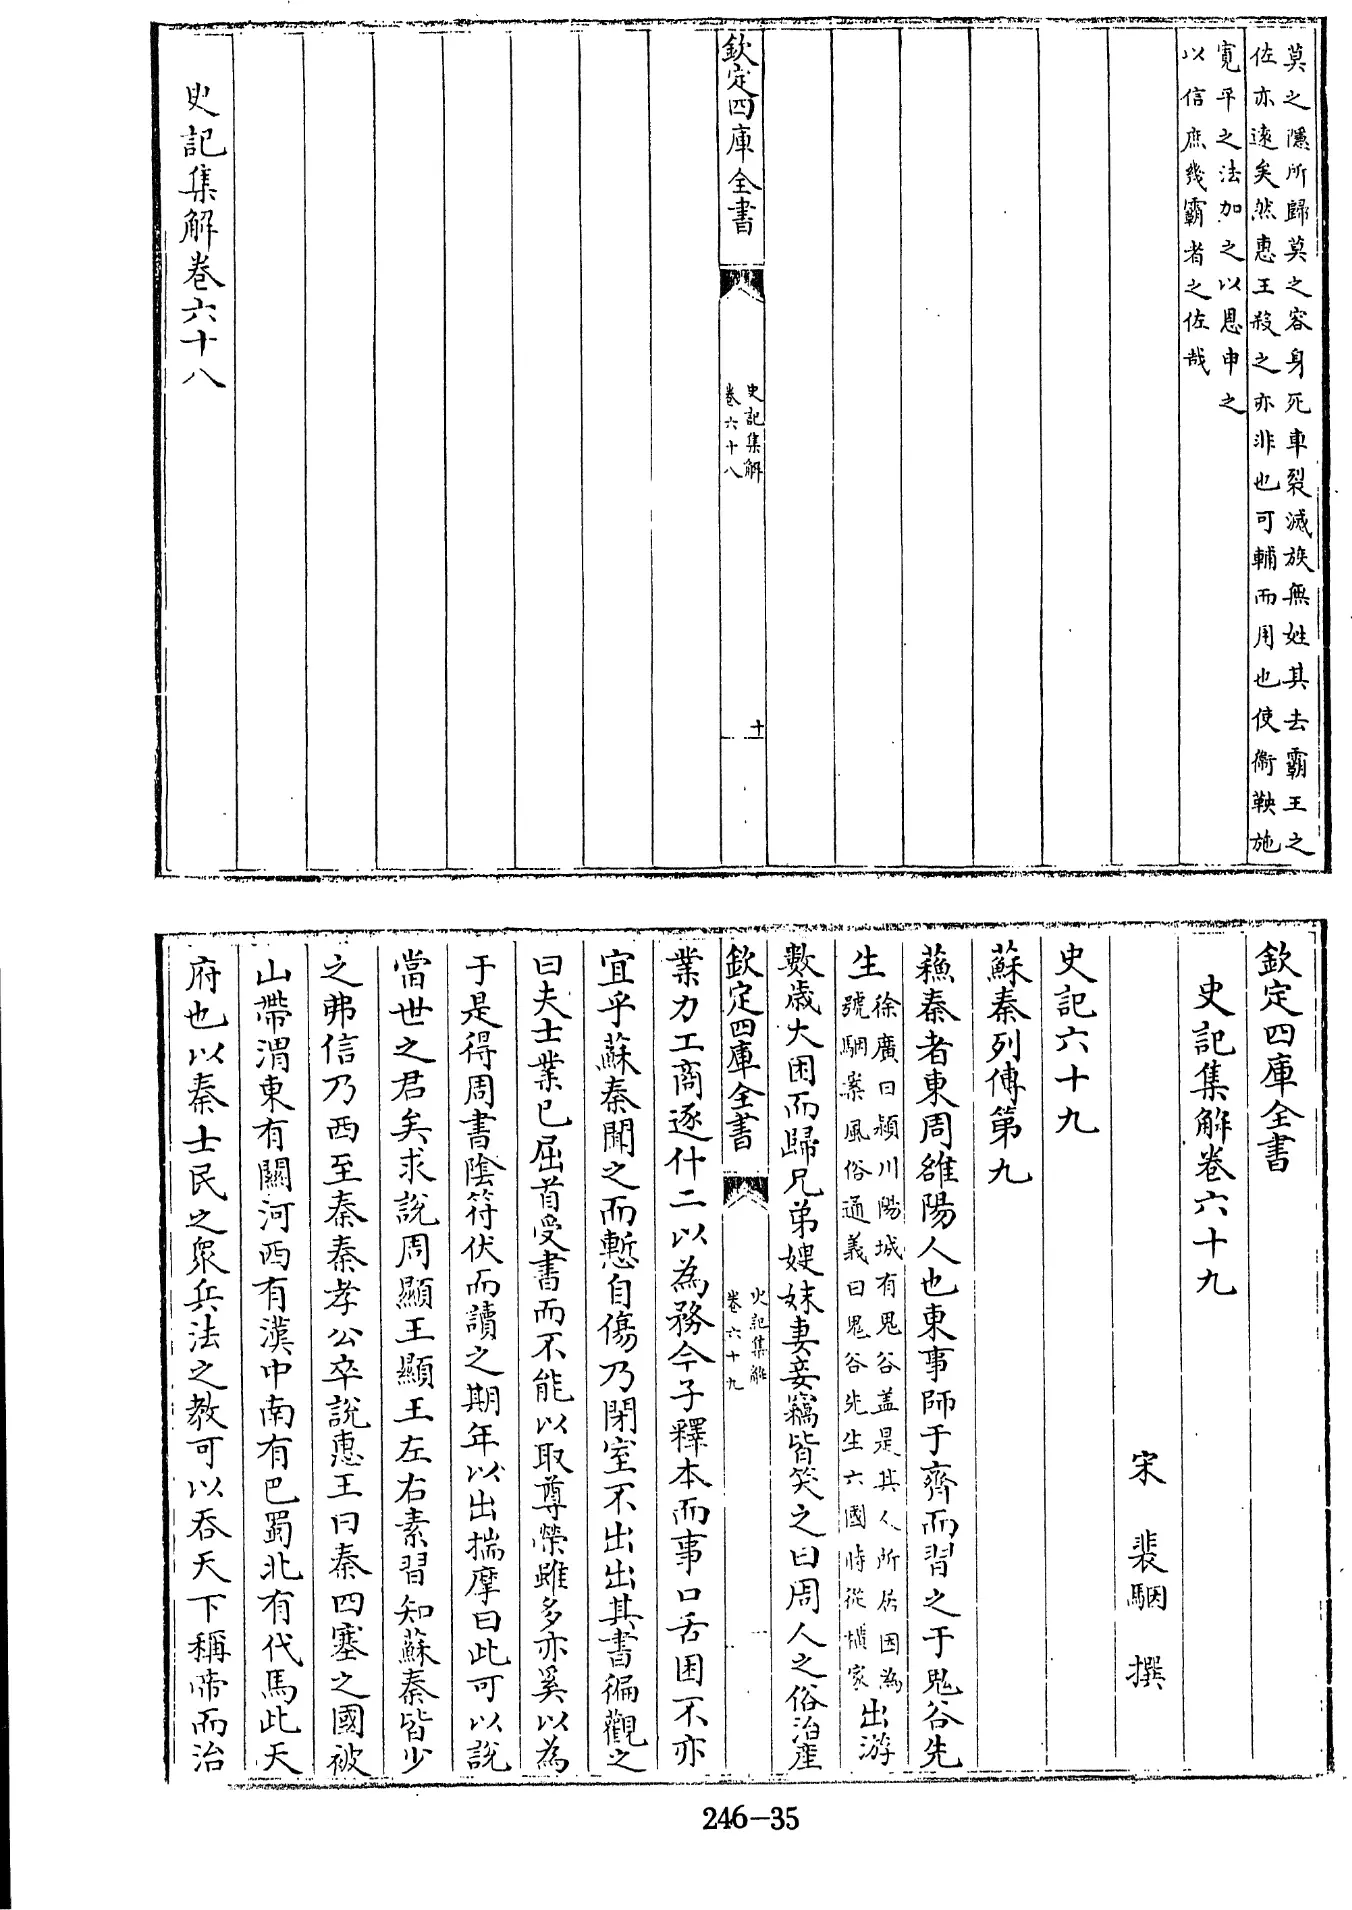 莫之隱所歸莫之容身死車裂滅族無姓其去霸王之
佐亦遠矣然惠王殺之亦非也可輔而用也使衞鞅施
寛平之法加之以恩申之
以信庶幾霸者之佐哉
欽定四庫全書
史記集解
卷六十八
十
史記集解卷六十八
欽定四庫全書
史記集解卷六十九
宋 裴駰 撰
史記六十九
蘇秦列傳第九
蘓秦者東周雒陽人也東事師于齊而習之于鬼谷先
生
徐廣曰潁川陽城有鬼谷盖是其人所居因為
號駰案風俗通義曰鬼谷先生六國時從横家
出游
數歲大困而歸兄弟嫂妹妻妾竊皆笑之曰周人之俗治産
欽定四庫全書
史記集解
卷六十九
業力工商逐什二以為務今子釋本而事口舌困不亦
宜乎蘇秦聞之而慙自傷乃閉室不出出其書徧觀之
曰夫士業已屈首受書而不能以取尊榮雖多亦奚以為
于是得周書陰符伏而讀之期年以出揣摩曰此可以說
當世之君矣求說周顯王顯王左右素習知蘇秦皆少
之弗信乃西至秦秦孝公卒說惠王曰秦四塞之國被
山帶渭東有關河西有漢中南有巴蜀北有代馬此天
府也以秦士民之衆兵法之教可以吞天下稱帝而治
246-35